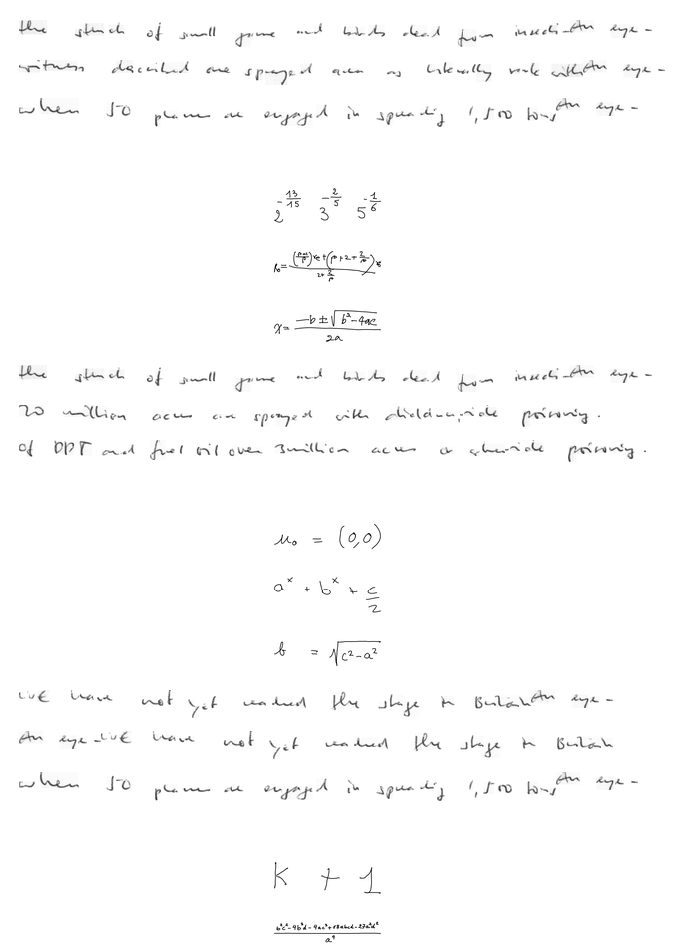 the stench of small game and birds dead from insecti-An eye-
witness described one sprayed area as literally reek with An eye-
when 50 planes are engaged in spreading 1,500 tons An eye-
2^{-\frac{13}{15}} 3^{-\frac{2}{5}} 5^{-\frac{1}{6}}
x = \frac{-b ± \sqrt{b^2 - 4ac}}{2a}
the stench of small game and birds dead from insecti-An eye-
20 million acres are sprayed with poisoning.
of DDT and fuel oil over 3 million acres a poisoning.
u_0 = (0,0)
a^x + b^x + \frac{c}{2}
b = \sqrt{c^2 - a^2}
WE have not yet reached the stage in Britain An eye-
An eye-WE have not yet reached the stage in Britain
when 50 planes are engaged in spreading 1,500 tons An eye-
K + 1
\frac{b^2c^2 - 4b^3d - 4ac^3 + 18abcd - 27a^2d^2}{a^4}